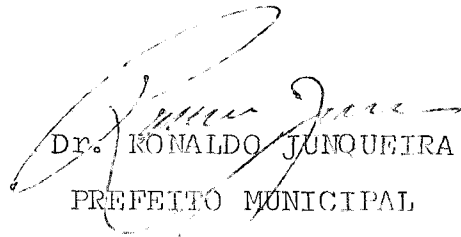 Dr. RONALDO JUNQUEIRA
PREFEITO MUNICIPAL